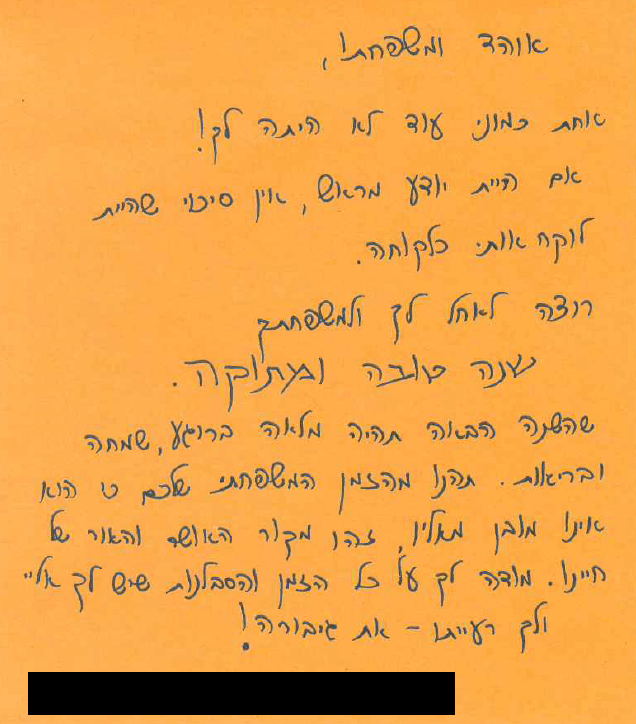 אוהד ומשפחתו,
אחת כמוני עוד לא היתה לך!
אם היית יודע מראש, אין סיכוי שהיית
לוקח אותי כלקוחה.
רוצה לאחל לך ולמשפחתך
שנה טובה ומתוקה.
שהשנה הבאה תהיה מלאה ברוגע, שמחה
ובריאות. תהנו מהזמן המשפחתי שלכם כי הוא
אינו מובן מאליו, זהו מקור האושר והאור של
חיינו. מודה לך על כל הזמן והסבלנות שיש לך אליי
ולך רעייתו - את גיבורה!